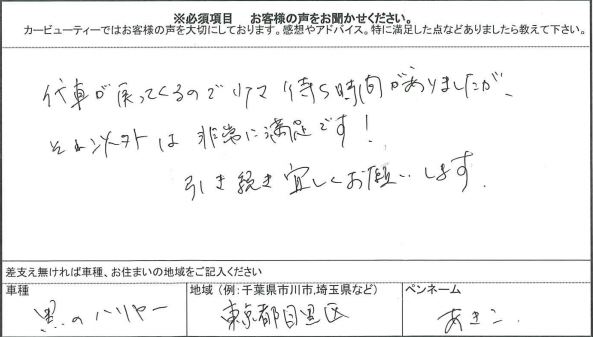 ※必須項目　お客様の声をお聞かせください。
カービューティーではお客様の声を大切にしております。感想やアドバイス。特に満足した点などありましたら教えて下さい。
代車が戻ってくるので 待ち時間がありましたが、
それ以外は 非常に満足です！
引き続き宜しくお願いします。
差支え無ければ車種、お住まいの地域をご記入ください
車種
地域 （例：千葉県市川市,埼玉県など）
ペンネーム
黒のハリヤー
東京都目黒区
あきこ